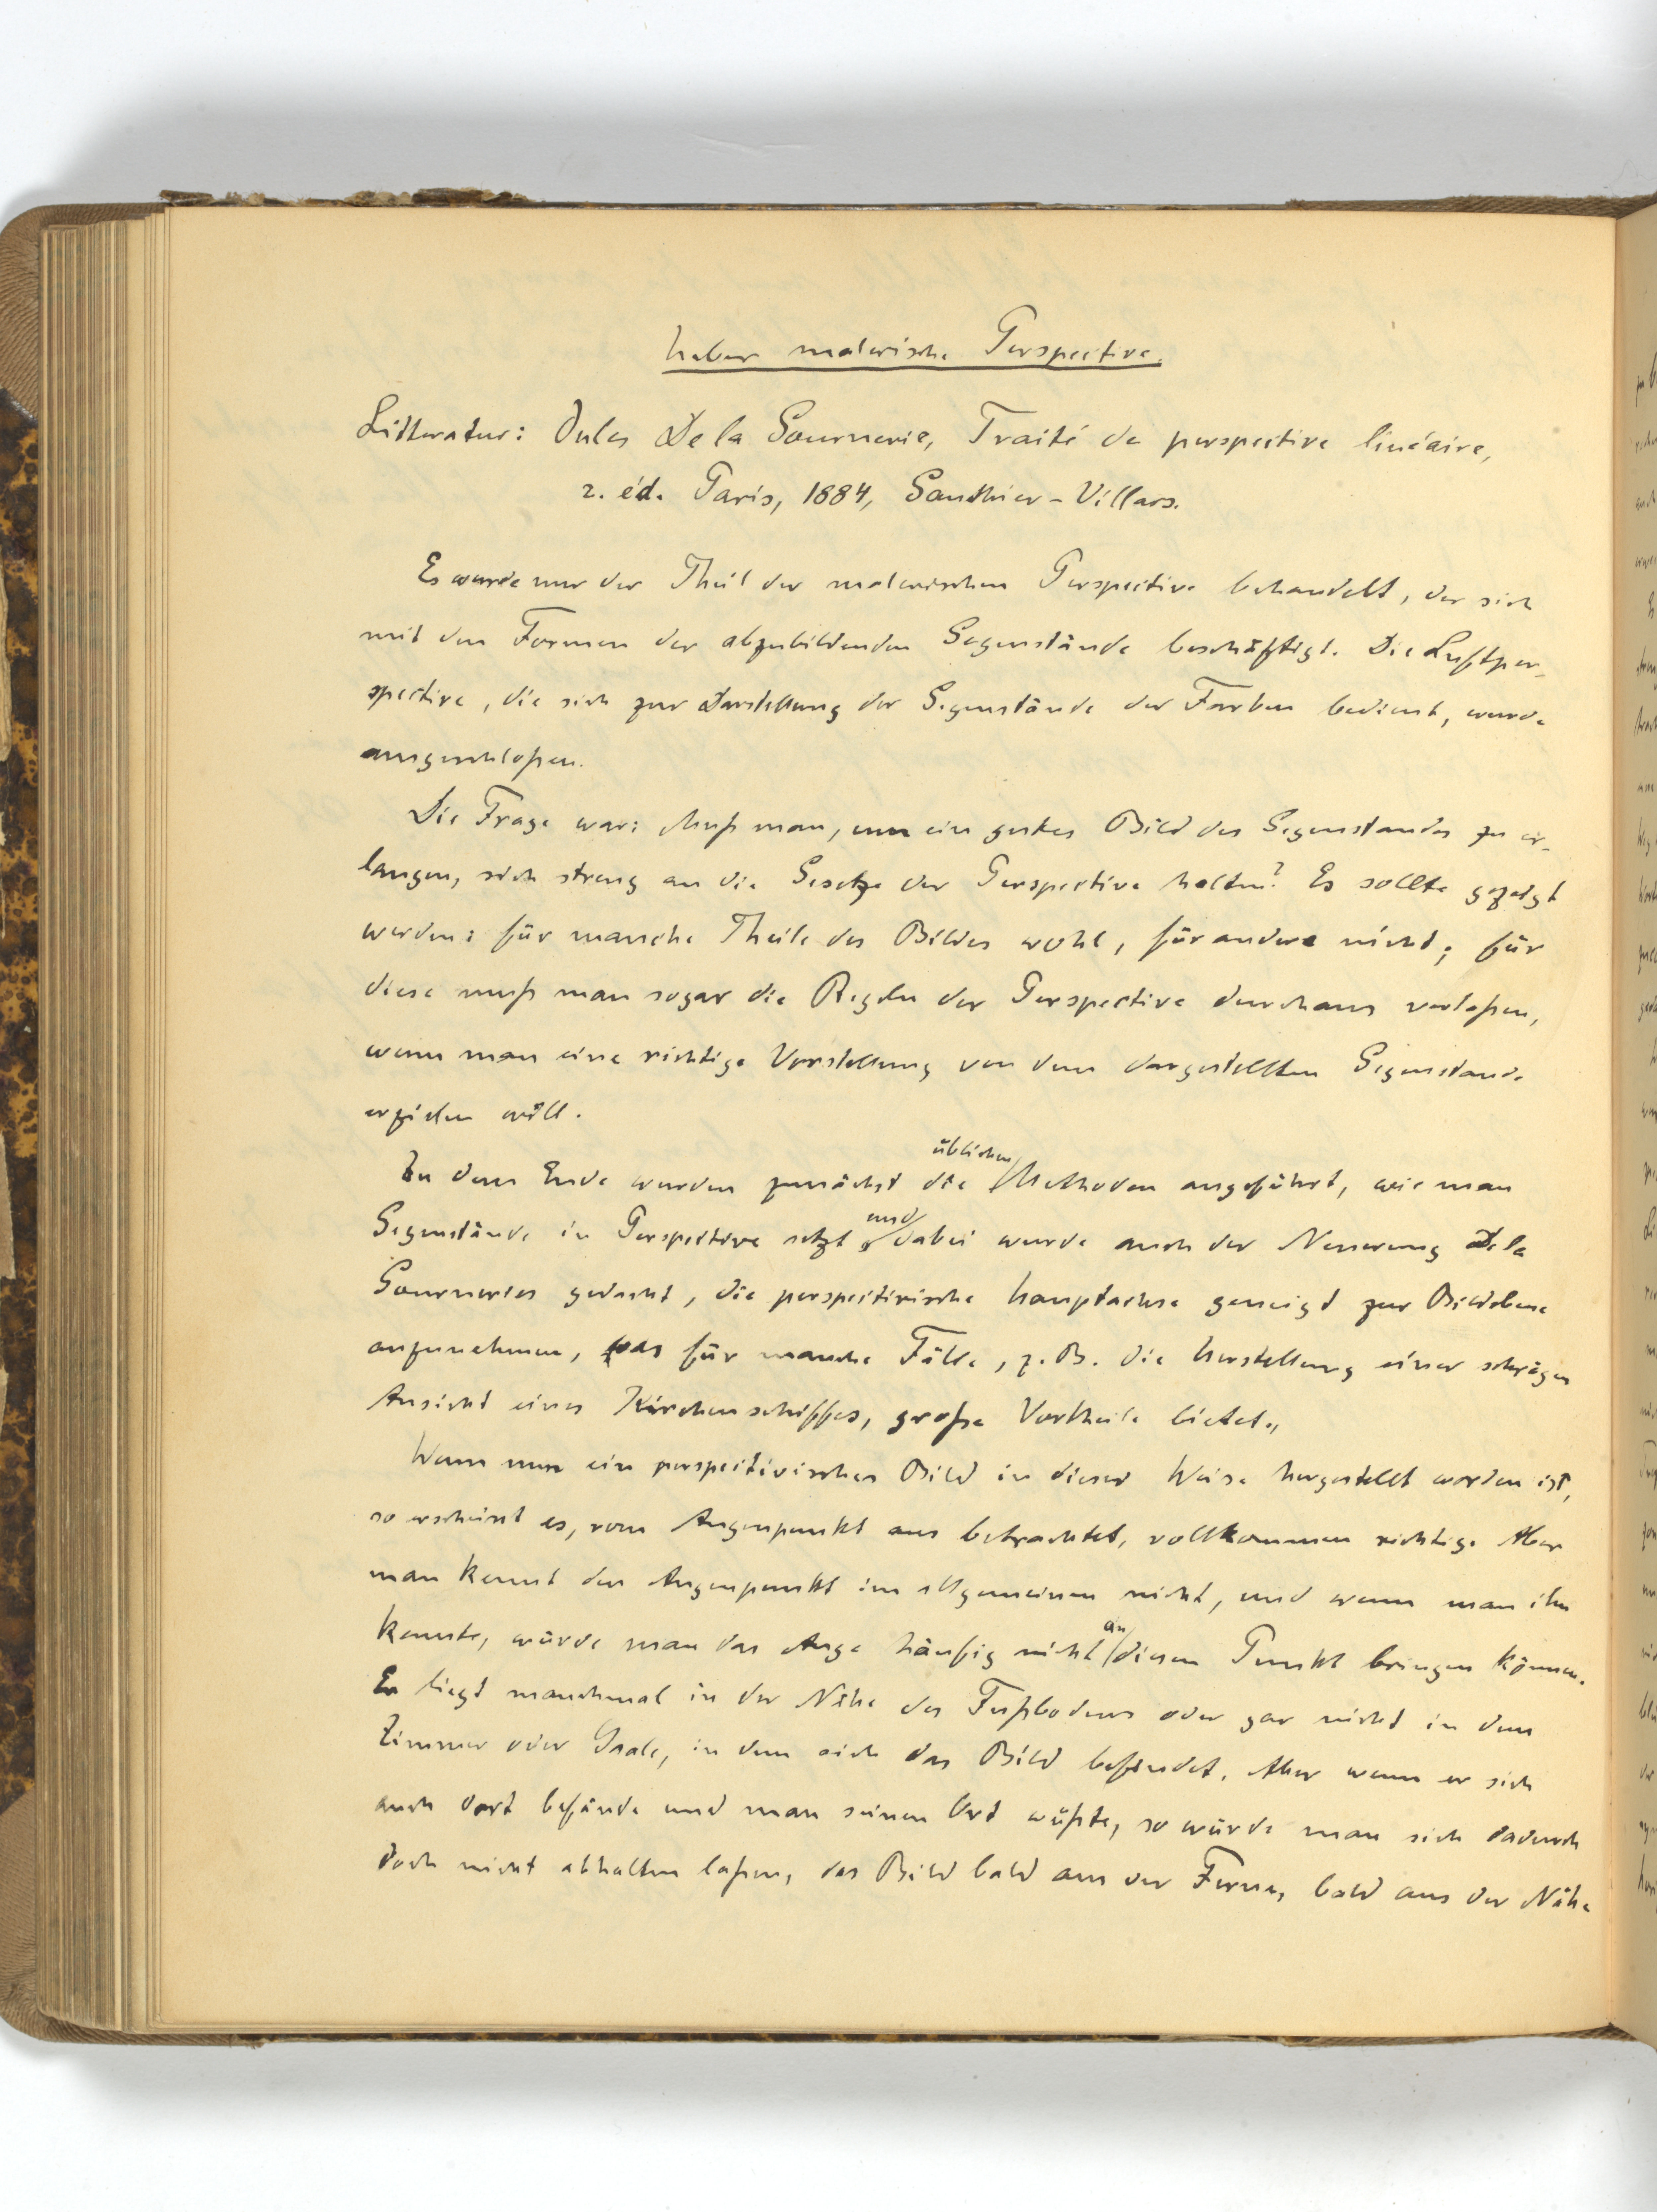 Ueber malerische Perspective.
Litteratur: Jules De la Gournerie, Traité de perspective linéaire,
2. éd. Paris, 1884, Gauthier-Villars.
Es wurde nur der Theil der malerischen Perspective behandelt, der sich
mit den Formen der abzubildenden Gegenstände beschäftigt. Die Luftper-
spective, die sich zur Darstellung der Gegenstände der Farben bedient, wurde
ausgeschloßen.
Die Frage war: Muß man, um ein gutes Bild des Gegenstandes zu er-
langen, sich streng an die Gesetze der Perspective halten? Es sollte gezeigt
werden: für manche Theile des Bildes wohl, für andere nicht; für
diese muß man sogar die Regeln der Perspective durchaus verlaßen,
wenn man eine richtige Vorstellung von dem dargestellten Gegenstande
erzielen will.
Zu dem Ende wurden zunächst die üblichen Methoden angeführt, wie man
Gegenstände in Perspective setzt und dabei wurde auch der Neuerung De la
Gourneries gedacht, die perspectivische Hauptachse geneigt zur Bildebene
anzunehmen, was für manche Fälle, z. B. die Herstellung einer schrägen
Ansicht eines Kirchenschiffes, große Vortheile bietet.
Wenn nun ein perspectivisches Bild in dieser Weise hergestellt worden ist,
so erscheint es, vom Augenpunkt aus betrachtet, vollkommen richtig. Aber
man kennt den Augenpunkt im allgemeinen nicht, und wenn man ihn
kennte, würde man das Auge häufig nicht an diesen Punkt bringen können.
Er liegt manchmal in der Nähe des Fußbodens oder gar nicht in dem
Zimmer oder Saale, in dem sich das Bild befindet. Aber wenn er sich
auch dort befände und man seinen Ort wüßte, so würde man sich dadurch
doch nicht abhalten laßen, das Bild bald aus der Ferne, bald aus der Nähe